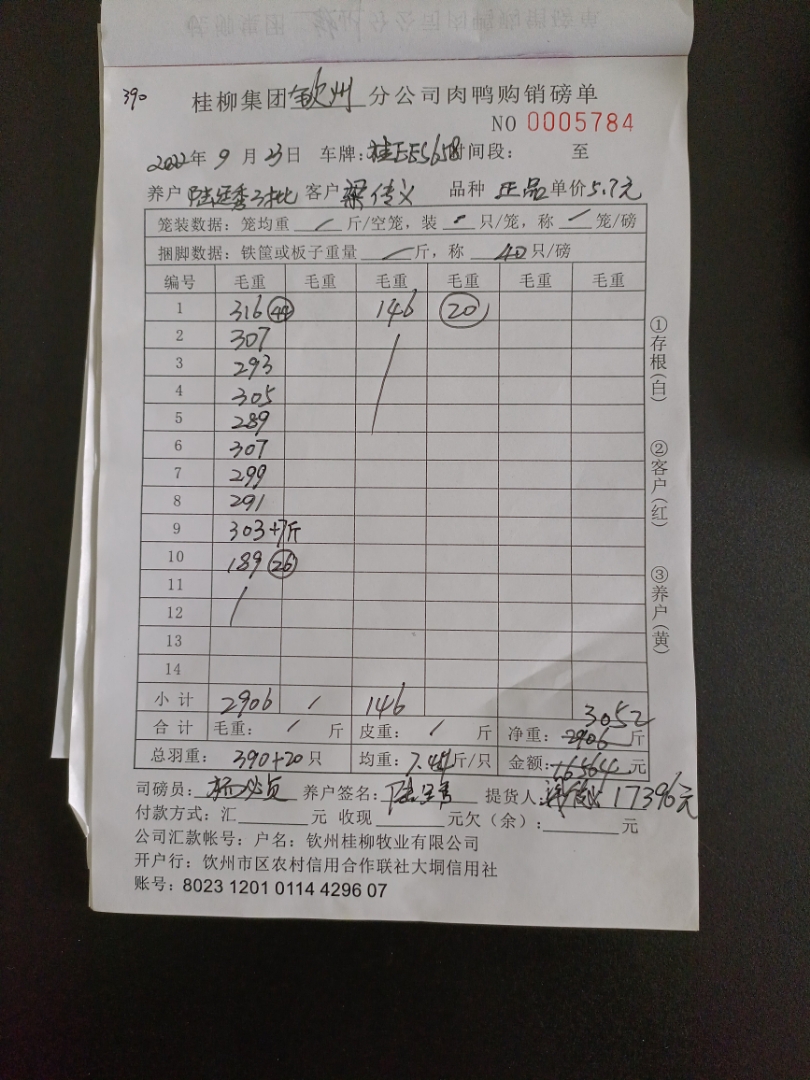 390
桂柳集团钦州分公司肉鸭购销磅单
NO 0005784
2022年9月23日 车牌:桂EES658时间段: 至
养户 客户梁传义 品种 正品 单价5.7元
笼装数据:笼均重 / 斤/空笼,装 - 只/笼,称 / 笼/磅
捆脚数据:铁筐或板子重量 / 斤,称 40 只/磅
编号 毛重 毛重 毛重 毛重 毛重 毛重
1 316 44 146 20
2 307 /
3 293
4 305
5 289
6 307
7 299
8 291
9 303+7斤
10 189 26
11 /
12
13
14
小计 2906 / 146
3052
合计 毛重: / 斤 皮重: / 斤 净重: 2906 斤
总羽重: 390+20只 均重:7.44斤/只 金额:16564元
司磅员: 养户签名: 提货人: 17396元
付款方式:汇 元 收现 元欠(余): 元
公司汇款帐号:户名:钦州桂柳牧业有限公司
开户行:钦州市区农村信用合作联社大垌信用社
账号:8023 1201 0114 4296 07
①存根(白)
②客户(红)
③养户(黄)